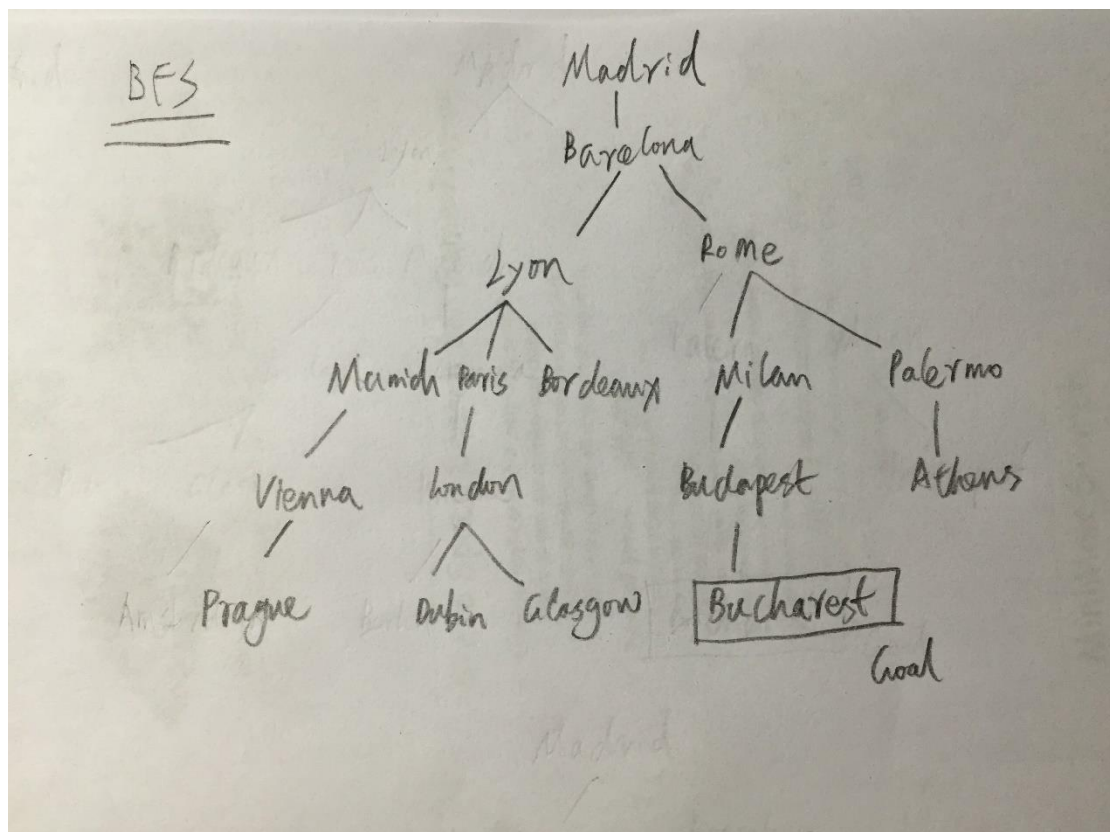 BFS
Madrid
Barcelona
Lyon Rome
Munich Paris Bordeaux Milan Palermo
Vienna London Budapest Athens
Prague Dubin Glasgow Bucharest
Goal
Madrid